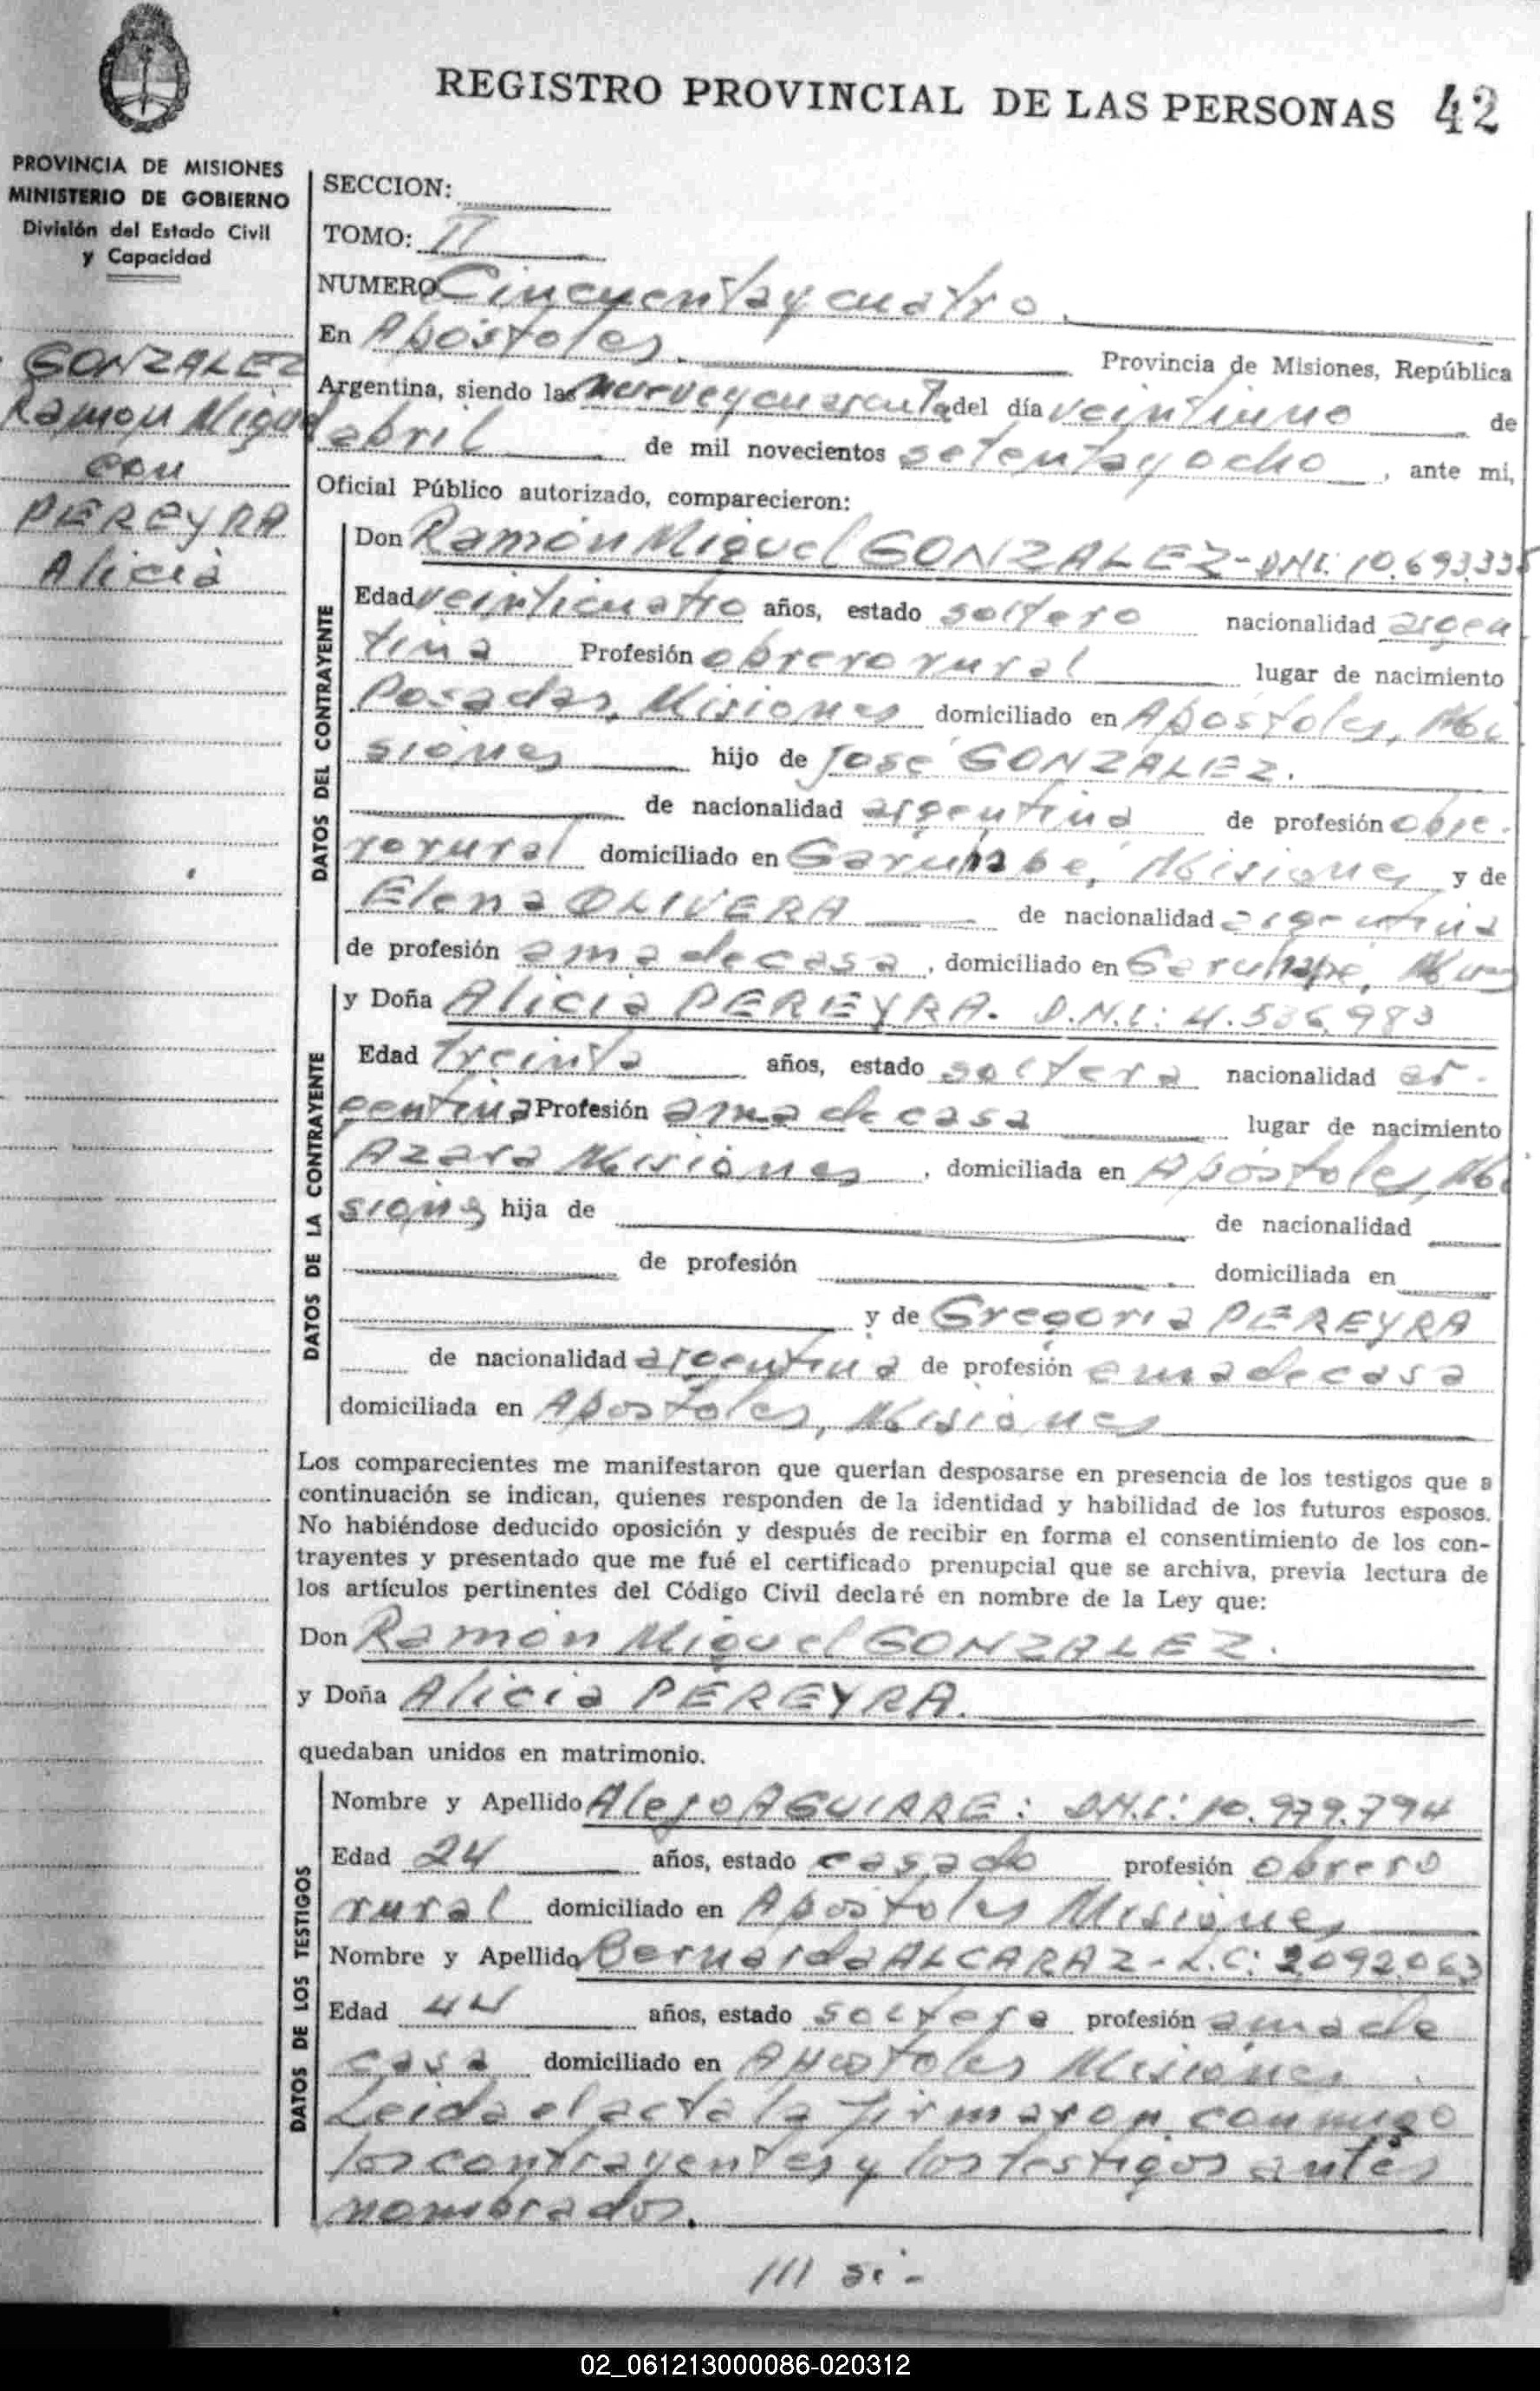 REGISTRO PROVINCIAL DE LAS PERSONAS 42
PROVINCIA DE MISIONES
MINISTERIO DE GOBIERNO
División del Estado Civil
y Capacidad
GONZALEZ
Ramon Miguel
con
PEREYRA
Alicia
SECCION:
TOMO: II
NUMERO Cincuenta y cuatro.
En Apóstoles. Provincia de Misiones, República
Argentina, siendo las nueve y cuarenta del día veintiuno de
abril de mil novecientos setenta y ocho, ante mi,
Oficial Público autorizado, comparecieron:
DATOS DEL CONTRAYENTE
Don Ramón Miguel GONZALEZ - DNI: 10.693.335
Edad veinticuatro años, estado soltero nacionalidad argen
tina Profesión obrero rural lugar de nacimiento
Posadas, Misiones domiciliado en Apóstoles, Mi
siones hijo de José GONZALEZ.
de nacionalidad argentina de profesión obre-
ro rural domiciliado en Garuhapé, Misiones y de
Elena OLIVERA de nacionalidad argentina
de profesión ama de casa, domiciliado en Garuhapé,
DATOS DE LA CONTRAYENTE
y Doña Alicia PEREYRA. D.N.I: 4.536.983
Edad treinta años, estado soltera nacionalidad ar-
gentina Profesión ama de casa lugar de nacimiento
Azara Misiones, domiciliada en Apóstoles, Mi
siones hija de de nacionalidad
de profesión domiciliada en
y de Gregoria PEREYRA
de nacionalidad argentina de profesión ama de casa
domiciliada en Apóstoles, Misiones
Los comparecientes me manifestaron que querían desposarse en presencia de los testigos que a
continuación se indican, quienes responden de la identidad y habilidad de los futuros esposos.
No habiéndose deducido oposición y después de recibir en forma el consentimiento de los con-
trayentes y presentado que me fué el certificado prenupcial que se archiva, previa lectura de
los artículos pertinentes del Código Civil declaré en nombre de la Ley que:
Don Ramón Miguel GONZALEZ.
y Doña Alicia PEREYRA.
quedaban unidos en matrimonio.
DATOS DE LOS TESTIGOS
Nombre y Apellido Alejo AGUIRRE: D.N.I: 10.979.794
Edad 24 años, estado casado profesión obrero
rural domiciliado en Apóstoles Misiones
Nombre y Apellido Bernarda ALCARAZ - L.C: 2.092.063
Edad 44 años, estado soltera profesión ama de
casa domiciliado en Apóstoles Misiones.
Leida el acta la firmaron conmigo
los contrayentes y los testigos antes
nombrados.
02_061213000086-020312